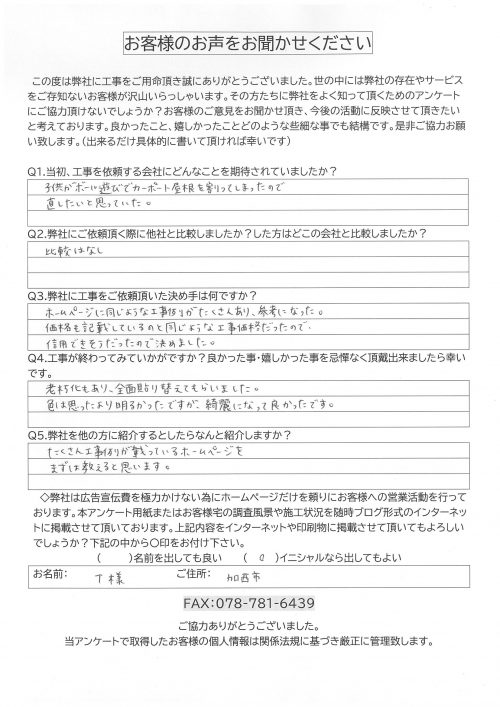 お客様のお声をお聞かせください
この度は弊社に工事をご用命頂き誠にありがとうございました。世の中には弊社の存在やサービス
をご存知ないお客様が沢山いらっしゃいます。その方たちに弊社をよく知って頂くためのアンケート
にご協力頂けないでしょうか？お客様のご意見をお聞かせ頂き、今後の活動に反映させて頂きたい
と考えております。良かったこと、嬉しかったことどのような些細な事でも結構です。是非ご協力お願
い致します。（出来るだけ具体的に書いて頂ければ幸いです）
Q1.当初、工事を依頼する会社にどんなことを期待されていましたか？
子供がボール遊びでカーポート屋根を割ってしまったので
直したいと思っていた。
Q2.弊社にご依頼頂く際に他社と比較しましたか？した方はどこの会社と比較しましたか？
比較はなし
Q3.弊社に工事をご依頼頂いた決め手は何ですか？
ホームページに同じような工事例がたくさんあり、参考になった。
価格も記載しているのと同じような工事価格だったので、
信用できそうだったので決めました。
Q4.工事が終わってみていかがですか？良かった事・嬉しかった事を忌憚なく頂戴出来ましたら幸い
です。
老朽化もあり、全面貼り替えてもらいました。
色は思ったより明るかったですが、綺麗になって良かったです。
Q5.弊社を他の方に紹介するとしたらなんと紹介しますか？
たくさん工事例が載っているホームページを
まずは教えると思います。
◇弊社は広告宣伝費を極力かけない為にホームページだけを頼りにお客様への営業活動を行って
おります。本アンケート用紙またはお客様宅の調査風景や施工状況を随時ブログ形式のインターネッ
トに掲載させて頂いております。上記内容をインターネットや印刷物に掲載させて頂いてもよろしい
でしょうか？下記の中から〇印をお付け下さい。
（　　）名前を出しても良い　（　○　）イニシャルなら出してもよい
お名前：　T様　ご住所：　加西市
FAX:078-781-6439
ご協力ありがとうございました。
当アンケートで取得したお客様の個人情報は関係法規に基づき厳正に管理致します。